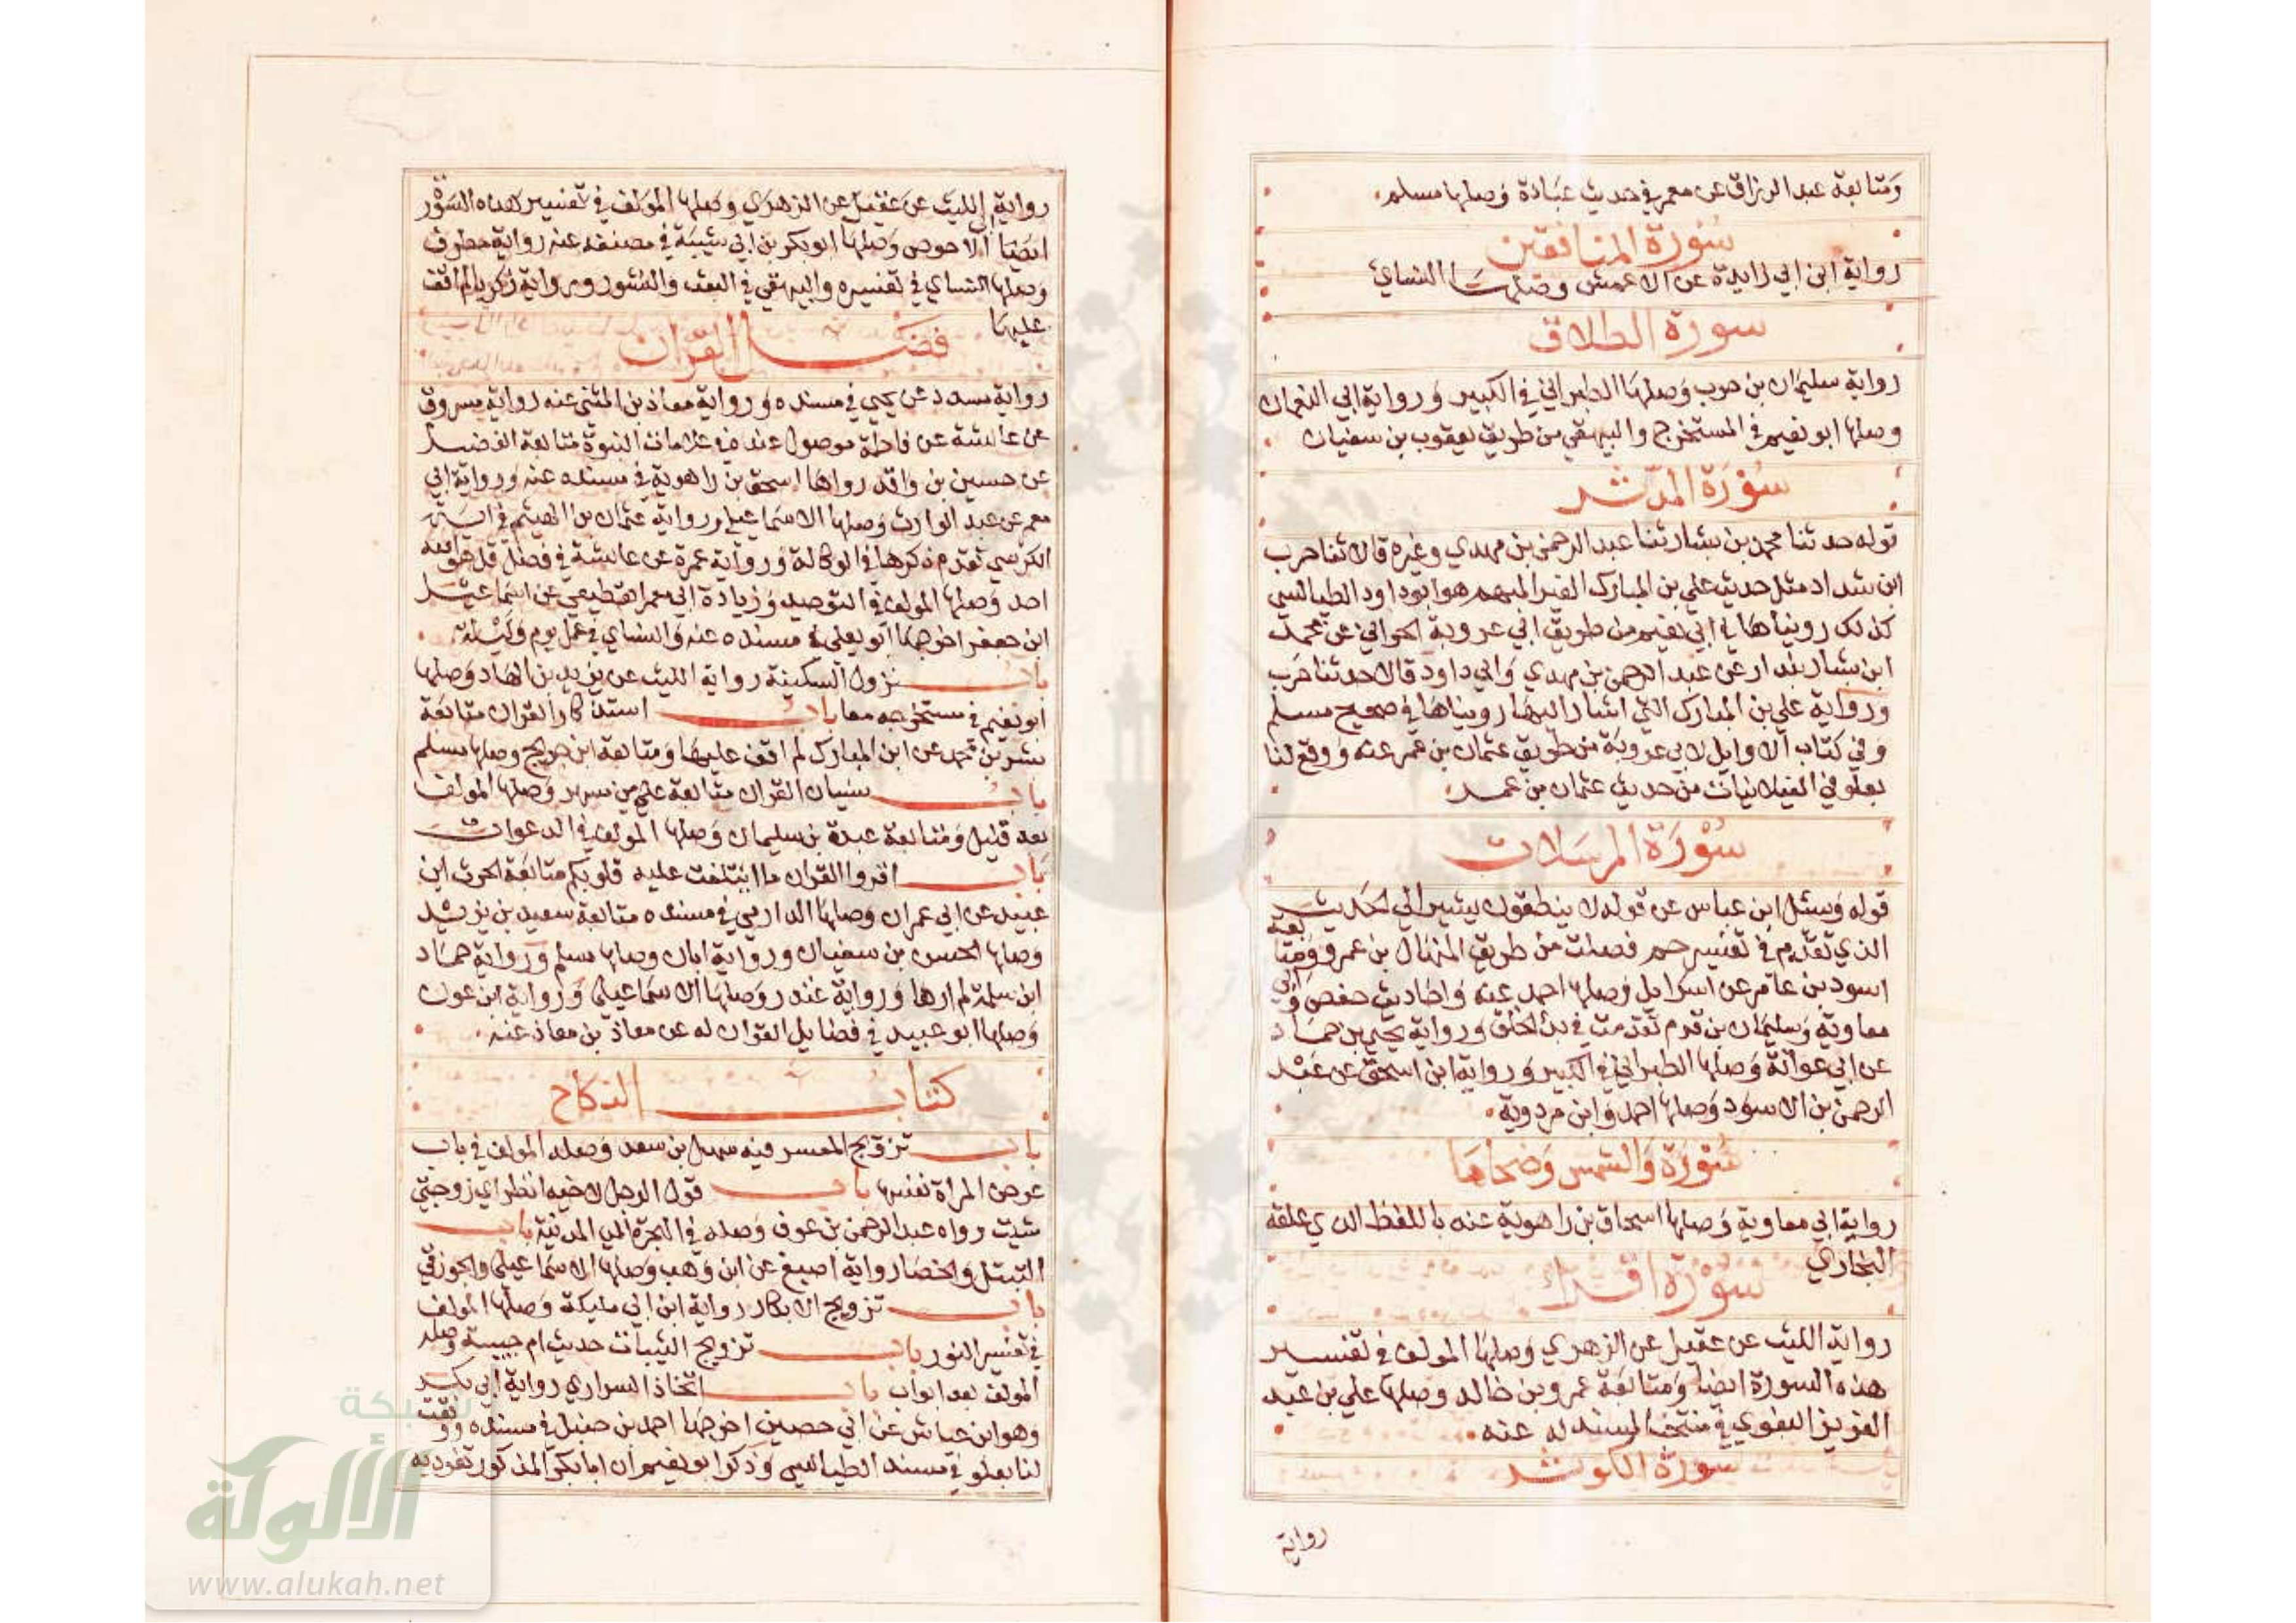 ومتابعة عبد الرزاق عن معمر في حديث عبادة وصلها مسلم
سورة المنافقين
رواية ابن ابي زايدة عن الاعمش وصلها النساي
سورة الطلاق
رواية سليمان بن حرب وصلها الطبراني في الكبير ورواية ابي النعمان
وصلها ابو نعيم في المستخرج والبيهقي من طريق يعقوب بن سفيان
سورة المدثر
قوله حدثنا محمد بن بشار ثنا عبد الرحمن بن مهدي وغيره قالا ثنا حرب
ابن شداد مثل حديث علي بن المبارك الغير المبهم هو ابو داود الطيالسي
كذلك رويناها في ابي نعيم من طريق ابي عروبة الحراني عن محمد
ابن بشار بندار عن عبد الرحمن بن مهدي وابي داود قالا حدثنا حرب
ورواية علي بن المبارك التي اشار اليها رويناها في صحيح مسلم
وفي كتاب الاوايل لابي عروبة من طريق عثمان بن عمر عنه ووقع لنا
بعلو في الغيلانيات من حديث عثمان بن عمر
سورة المرسلات
قوله وسئل ابن عباس عن قوله لا ينطقون يشير الي الحديث
الذي تقدم في تفسير حم فصلت من طريق المنهال بن عمرو ومتابعة
اسود بن عامر عن اسرايل وصلها احمد عنه واحاديث حفص وابي
معاوية وسليمان بن قرم تقدمت في بدء الخلق ورواية يحيي بن حماد
عن ابي عوانة وصلها الطبراني في الكبير ورواية ابن اسحق عن عبد
الرحمن بن الاسود وصلها احمد وابن مردوية
سورة والشمس وضحاها
رواية ابي معاوية وصلها اسحاق بن راهوية عنه باللفظ الذي علقه
البخاري
سورة اقراء
رواية الليث عن عقيل عن الزهري وصلها المولف في تفسير
هذه السورة ايضا ومتابعة عمرو بن خالد وصلها علي بن عبد
العزيز البغوي في منتخب المسند له عنه
سورة الكوثر
رواية
رواية الليث عن عقيل عن الزهري وصلها المولف في تفسير هذه السورة
ايضا ابي الاحوص وصلها ابو بكر بن ابي شيبة في مصنفه عنه رواية مطرف
وصلها النساي في تفسيره والبيهقي في البعث والنشور ورواية زكريا لم اقف
عليها
فضايل القران
رواية مسدد عن يحيي في مسنده ورواية معاذ بن المثني عنه رواية مسروق
عن عائشة عن فاطمة موصول عنده في علامات النبوة متابعة الفضل
عن حسين بن واقد رواها اسحق بن راهوية في مسنده عنه ورواية ابي
معمر عن عبد الوارث وصلها الاسماعيلي ورواية عثمان بن الهيثم في اية
الكرسي تقدم ذكرها في الوكالة ورواية عمرة عن عائشة في فضل قل هو الله
احد وصلها المولف في التوحيد وزيادة ابي معمر القطيعي عن اسماعيل
ابن جعفر اخرجها ابو يعلي في مسنده عنه والنساي في عمل يوم وليلة
باب نزول السكينة رواية الليث عن يزيد بن الهاد وصلها
ابو نعيم في مستخرجه معا باب استذكار القران متابعة
بشر بن محمد عن ابن المبارك لم اقف عليها ومتابعة ابن جريج وصلها مسلم
باب نسيان القران متابعة علي بن مسهر وصلها المولف
بعد قليل ومتابعة عبدة بن سليمان وصلها المولف في الدعوات
باب اقروا القران ما ايتلفت عليه قلوبكم متابعة الحرث ابن
عبيد عن ابي عمران وصلها الدارمي في مسنده متابعة سعيد بن يزيد
وصلها الحسن بن سفيان ورواية ابان وصلها مسلم ورواية حماد
ابن سلمة لم ارها ورواية غندر وصلها الاسماعيلي ورواية ابن عون
وصلها ابو عبيد في فضايل القران له عن معاذ بن معاذ عنه
كتاب النكاح
باب تزويج المعسر فيه سهل بن سعد وصله المولف في باب
عرض المراة نفسها باب قول الرجل لاخيه انظر اي زوجتي
شيت رواه عبد الرحمن بن عوف وصله في الهجرة الي المدينة باب
التبتل والخصا رواية اصبغ عن ابن وهب وصلها الاسماعيلي والجوزقي
باب تزويج الابكار رواية ابن ابي مليكة وصلها المولف
في تفسير النور باب تزويج الثيبات حديث ام حبيبة وصله
المولف بعد ابواب باب اتخاذ السراري رواية ابي بكر
وهو ابن عياش عن ابي حصين اخرجها احمد بن حنبل في مسنده ووقعت
لنا بعلو في مسند الطيالسي وذكر ابو نعيم ان ابا بكر المذكور تفرد به
شبكة
الألوكة
www.alukah.net